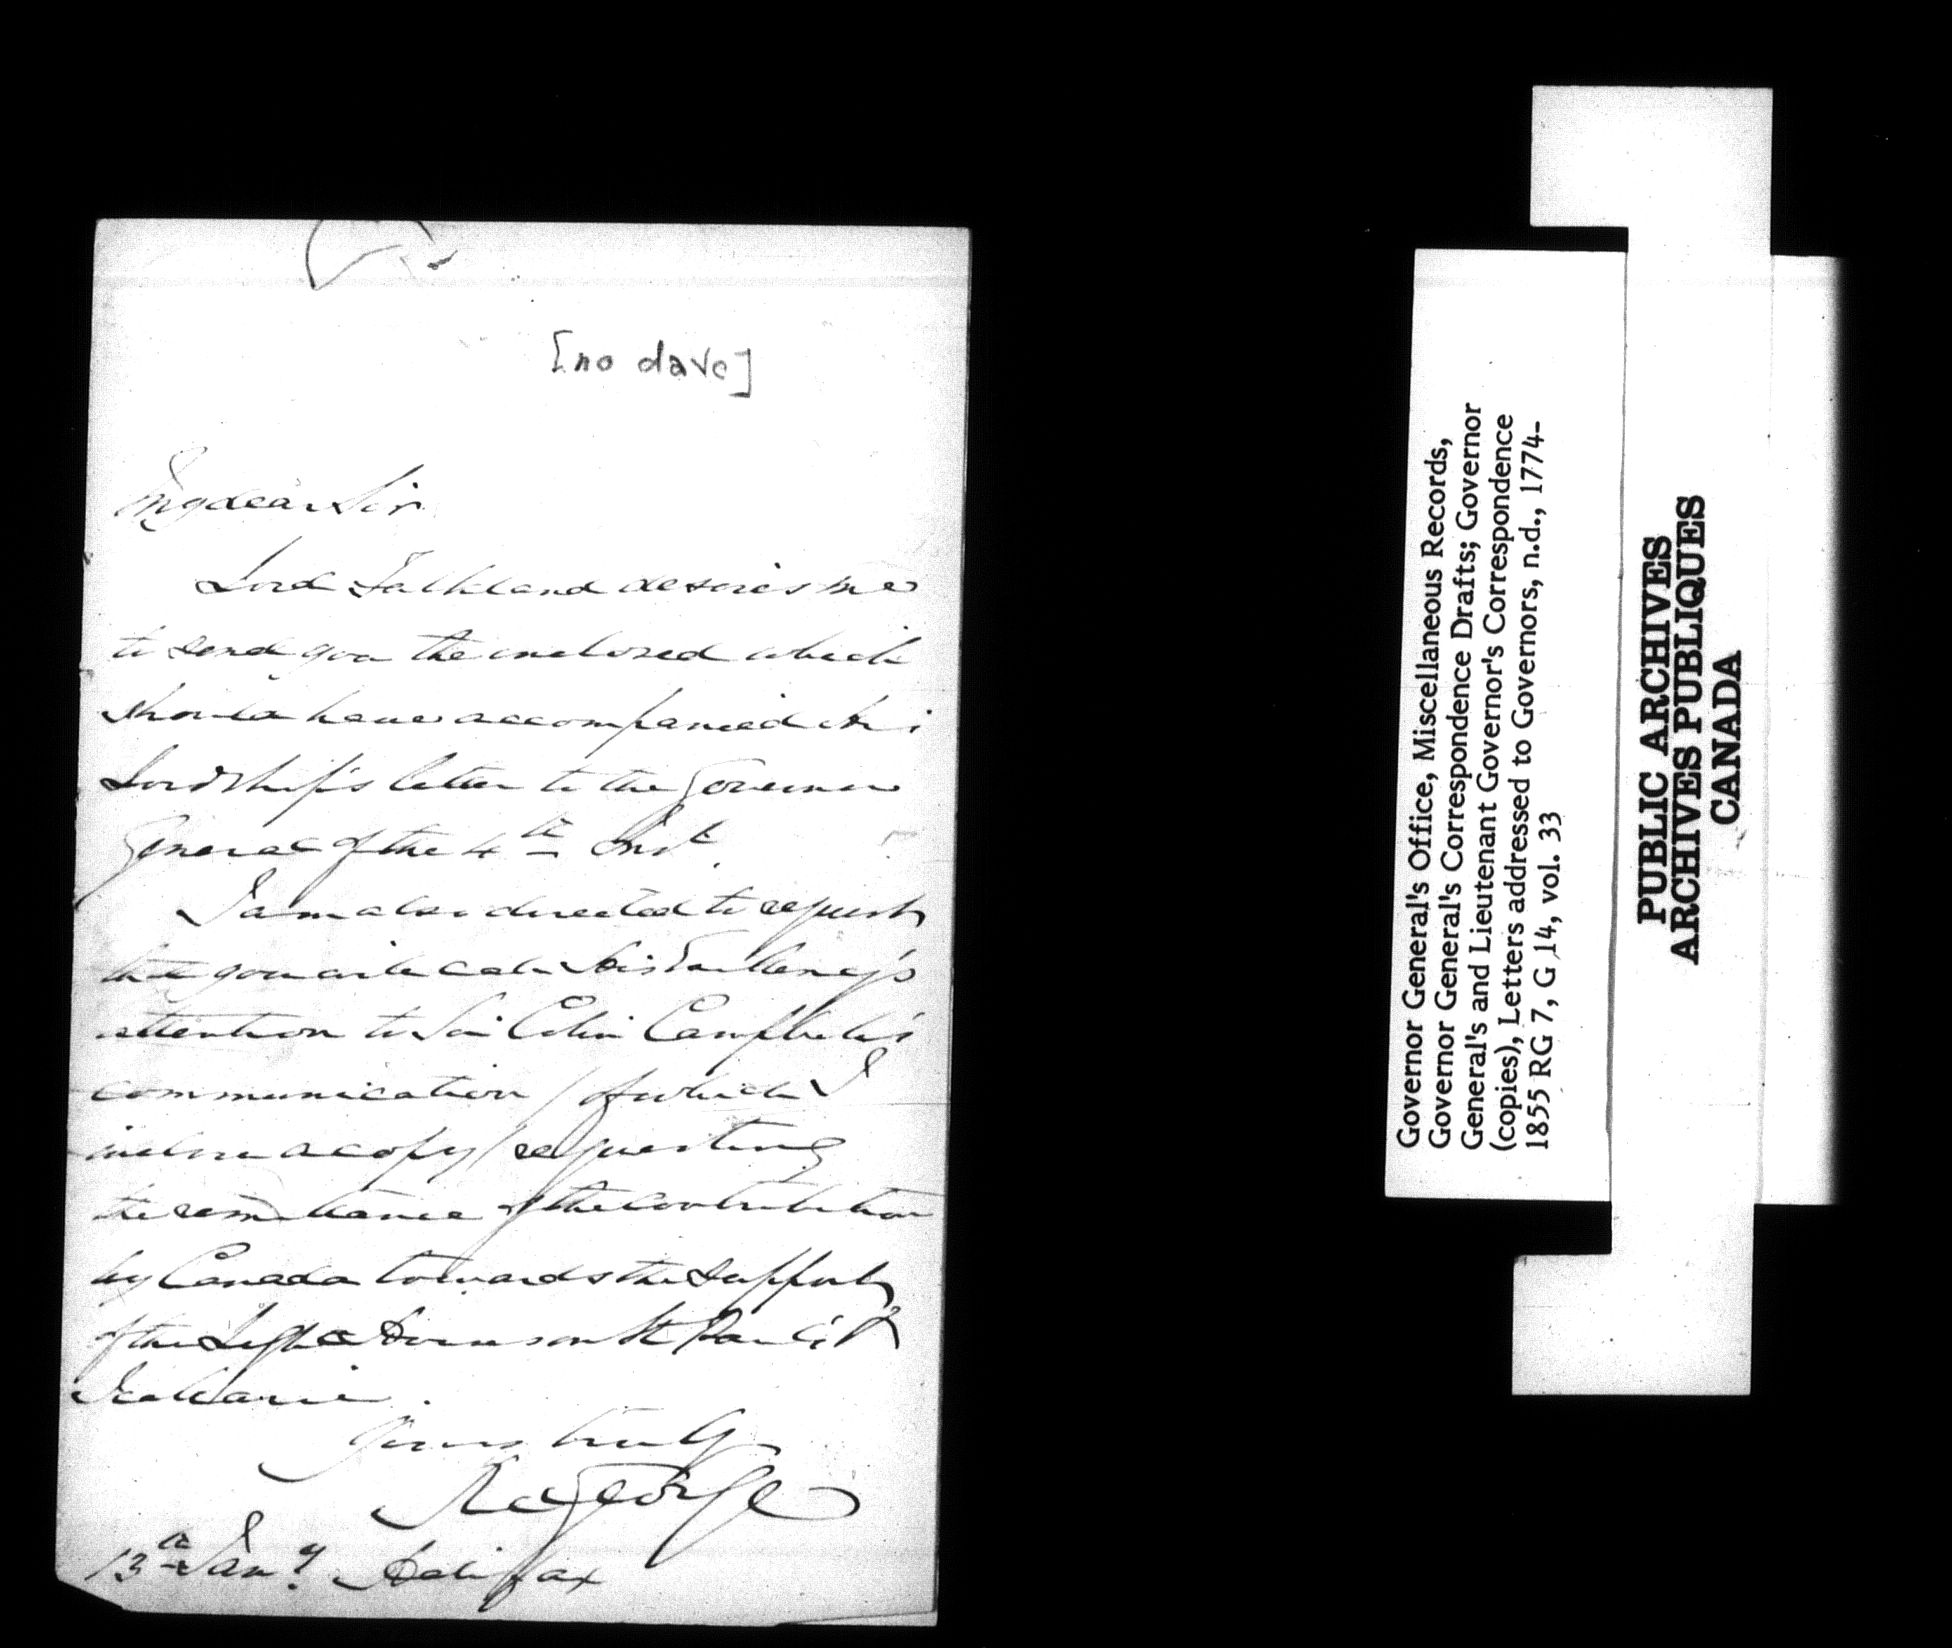 [no date]
My dear Sir
Lord Falkland desires me
to send you the inclosed which
should have accompanied his
Lordship's letter to the Governor
General of the 4th Inst.
I am also directed to request
that you will call His Excellency's
attention to Sir Colin Campbell's
communication / of which I
inclose a copy / requesting
the remittance of the contribution
by Canada towards the support
of the Light Houses on St Paul's &
Scatarie.
Yours truly
R d George
13th Jany. Halifax
Governor General's Office, Miscellaneous Records,
Governor General's Correspondence Drafts; Governor
General's and Lieutenant Governor's Correspondence
(copies), Letters addressed to Governors, n.d., 1774-
1855 RG 7, G 14, vol. 33
PUBLIC ARCHIVES
ARCHIVES PUBLIQUES
CANADA